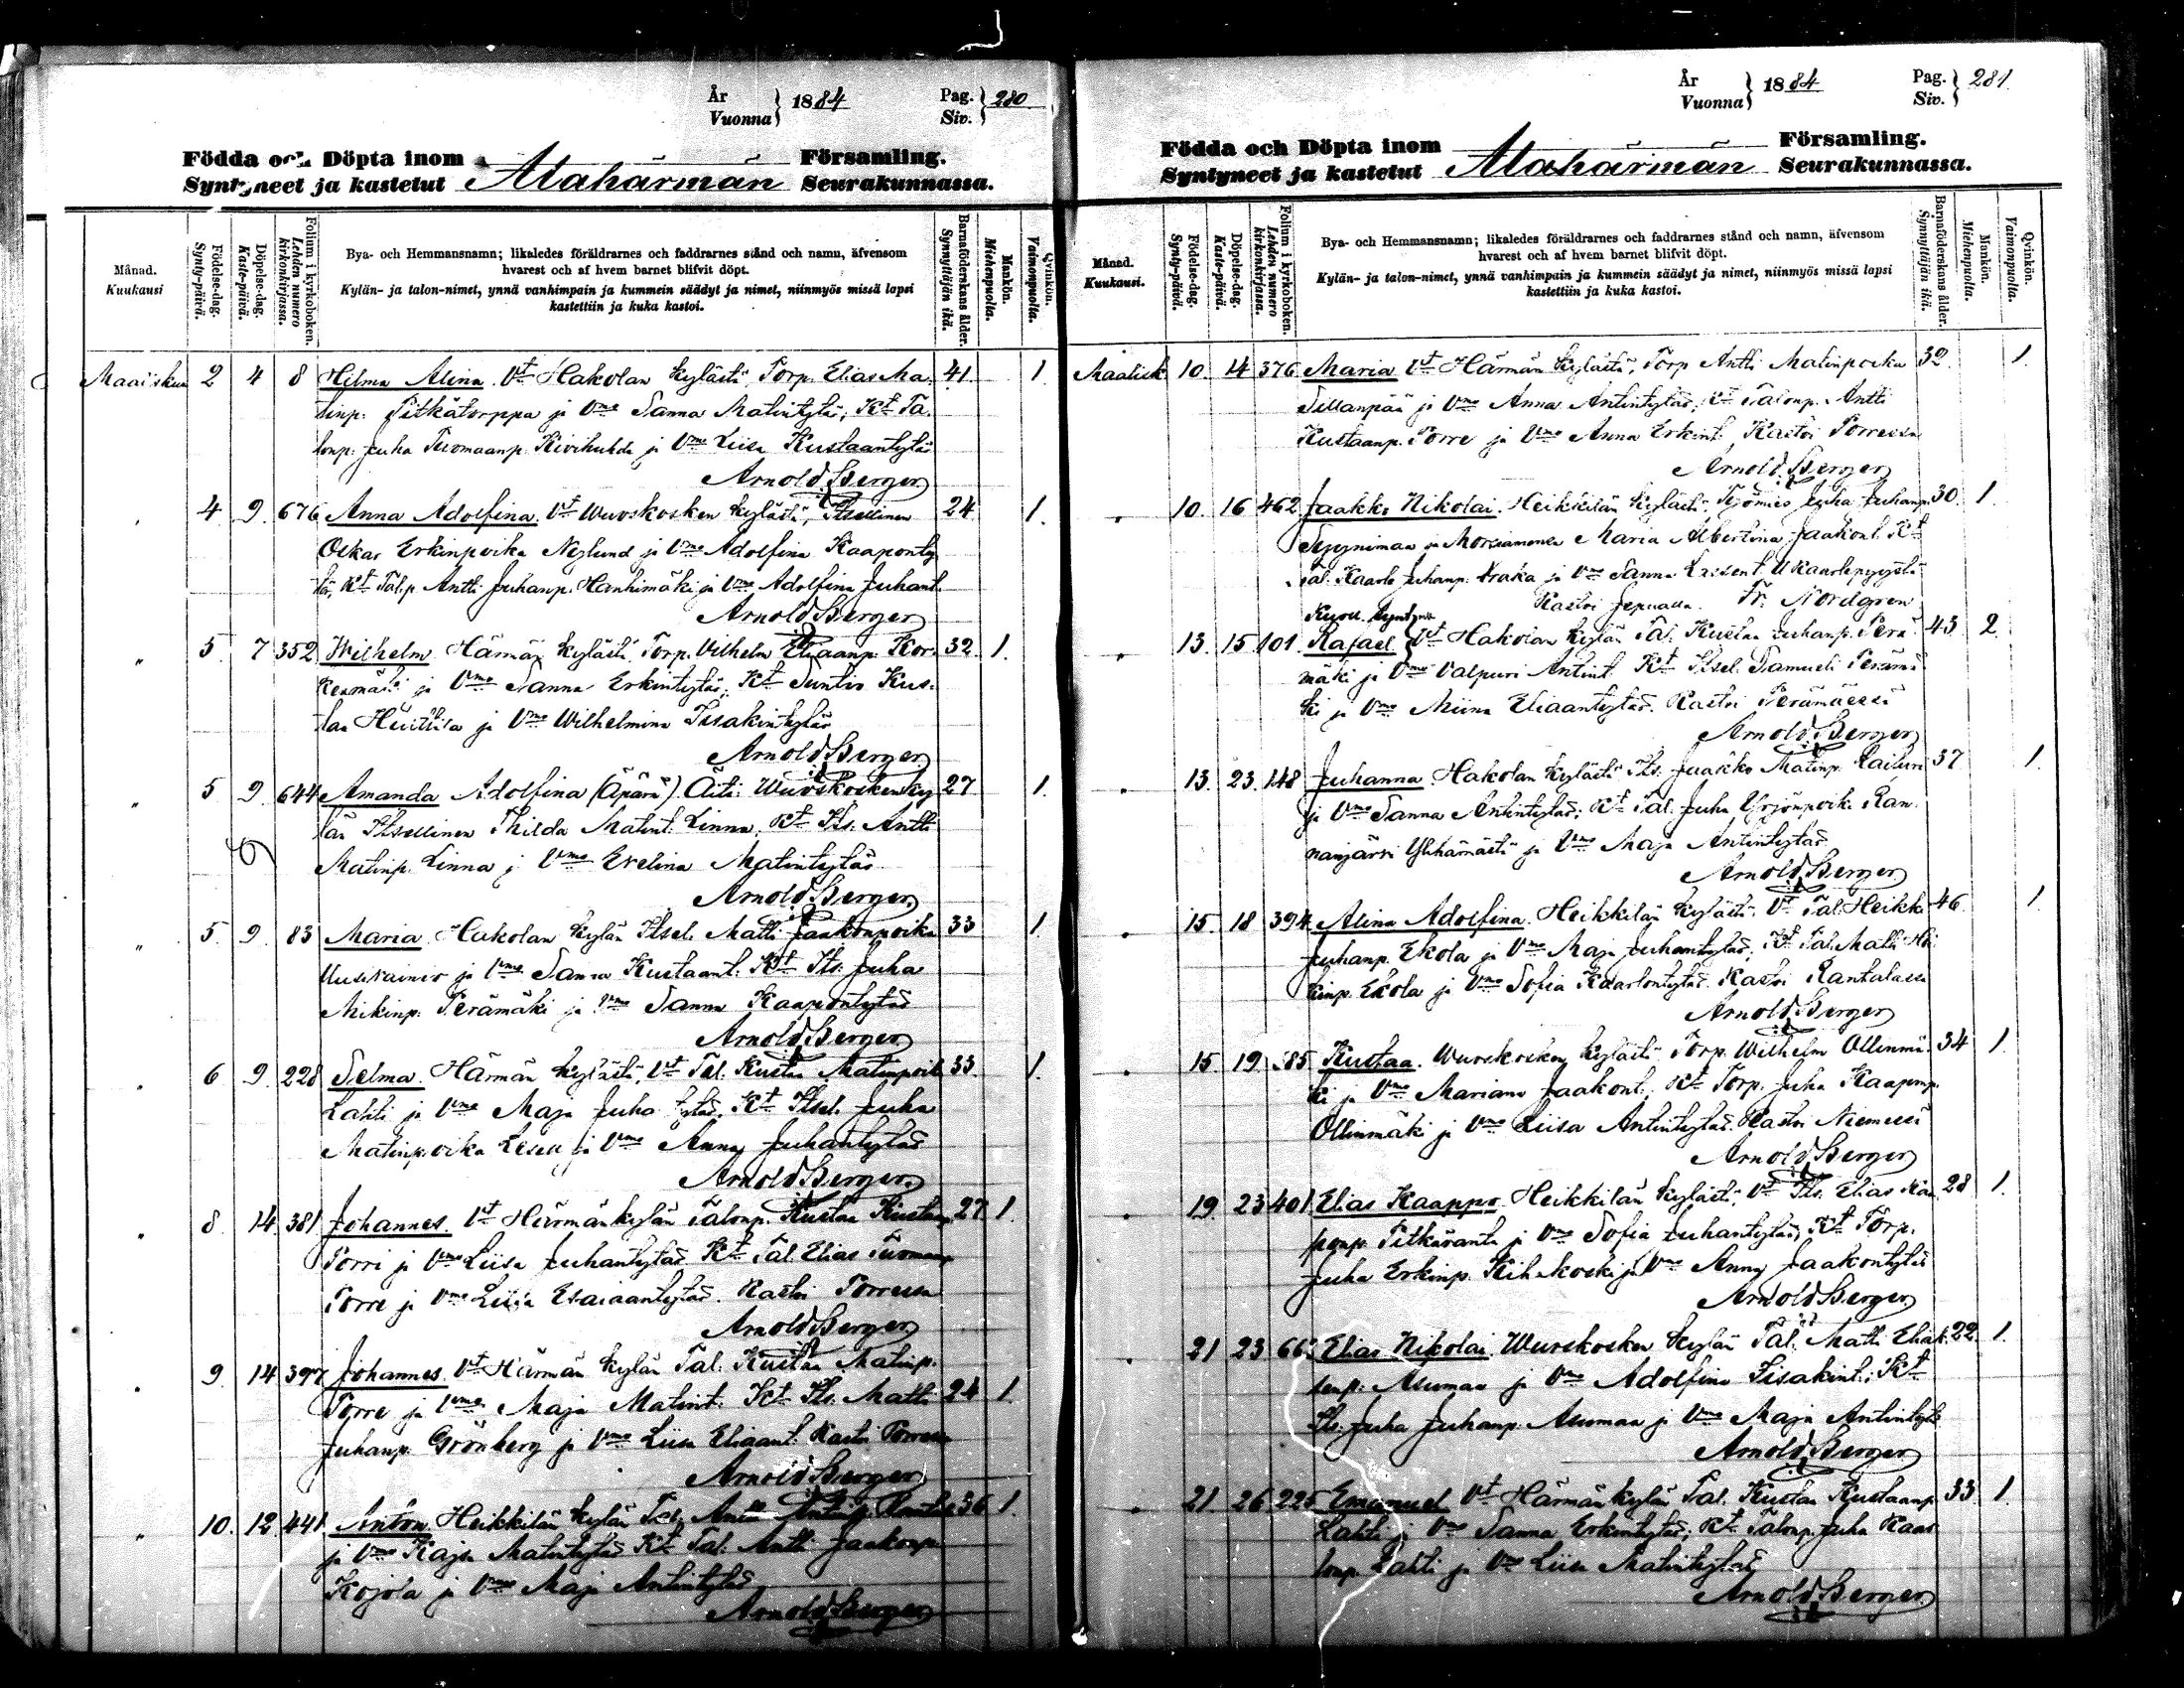 År
Vuonna } 1884
Pag.
Siv. } 280
Födda och Döpta inom Församling.
Syntyneet ja kastetut Alahärmän Seurakunnassa.
Månad.
Kuukausi
Födelse-dag.
Synty-päivä.
Döpelse-dag.
Kaste-päivä.
Folium i kyrkoboken.
Lehden numero
kirkonkirjassa.
Bya- och Hemmansnamn; likaledes föräldrarnes och faddrarnes stånd och namn, äfvensom
hvarest och af hvem barnet blifvit döpt.
Kylän- ja talon-nimet, ynnä vanhimpain ja kummein säädyt ja nimet, niinmyös missä lapsi
kastettiin ja kuka kastoi.
Barnaföderskans ålder.
Synnyttäjän ikä.
Mankön.
Miehenpuolta.
Qvinkön.
Vaimonpuolta.
Maaliskuu 2 4 8 Hilma Alina. Vt Hakolan kylästä, Torp. Elias Ma- 41. 1
tinp. Pitkätorppa ja Vmo Sanna Matintytär; Kt Ta-
lonp. Juha Tuomaanp. Kivihuhda ja Vmo Liisa Kustaantytär
Arnold Berger
" 4 9. 676 Anna Adolfina. Vt Wuoskosken kylästä, Itsellinen 24 1.
Oskar Erkinpoika Nylund ja Vmo Adolfina Kaaponty-
tär, Kt Tal.p. Antti Juhanp. Hanhimäki ja Vmo Adolfina Juhant.
Arnold Berger
" 5. 7 352 Wilhelm. Härmän kylästä Torp. Vilhelm Eliaanp. Kor- 32. 1.
keamäki ja Vmo Sanna Erkintytär; Kt Suntio Kus-
taa ja Vmo Wilhelmina Iisakintytär
Arnold Berger
" 5 9. 644 Amanda Adolfina (Äpärä). Äiti: Wuoskosken ky- 27 1.
län Itsellinen Thilda Matint. Linna, Kt Its. Antti
Matinp. Linna ja Vmo Evelina Matintytär
Arnold Berger
" 5. 9. 83 Maria. Hakolan kylän Itsel. Matti Jaakonpoika 33 1
ja Vmo Sanna Kustaant. Kt Its. Juha
Mikinp. Perämäki ja Vmo Sanna Kaapontytär
Arnold Berger
" 6 9. 228 Selma. Härmän kylästä, Vt Tal. Kustaa Matinpoik. 33. 1.
Lahti ja Vmo Maja Juha tytär, Kt Itsel. Juha
Matinpoika ja Vmo Anna Juhantytär
Arnold Berger
" 8. 14. 381 Johannes. Vt Härmänkylän Talonp. Kustaa Kustaap. 27 1.
Porri ja Vmo Liisa Juhantytär Kt Tal. Elias Tuomaanp.
Porre ja Vmo Liisa Esaiaantytär. Kastoi Porressa
Arnold Berger
" 9. 14 397 Johannes. Vt Härmän kylän Tal. Kustaa Matinp.
Porre ja Vmo Maja Matint. Kt Its. Matti 24 1.
Juhanp. Grönberg ja Vmo Liisa Eliaant. Kastoi Porressa
Arnold Berger
" 10. 12. 441. Anton. Heikkilän kylän 36 1.
ja Vmo Kaja Matintytär Kt Tal. Antti Jaakonp.
Kojola ja Vmo Maja Antintytär
Arnold Berger
År
Vuonna } 1884
Pag.
Siv. } 281.
Födda och Döpta inom Församling.
Syntyneet ja kastetut Alahärmän Seurakunnassa.
Månad.
Kuukausi.
Födelse-dag.
Synty-päivä.
Döpelse-dag.
Kaste-päivä.
Folium i kyrkoboken.
Lehden numero
kirkonkirjassa.
Bya- och Hemmansnamn; likaledes föräldrarnes och faddrarnes stånd och namn, äfvensom
hvarest och af hvem barnet blifvit döpt.
Kylän- ja talon-nimet, ynnä vanhimpain ja kummein säädyt ja nimet, niinmyös missä lapsi
kastettiin ja kuka kastoi.
Barnaföderskans ålder.
Synnyttäjän ikä.
Mankön.
Miehenpuolta.
Qvinkön.
Vaimonpuolta.
Maalisk 10. 14 376 Maria Vt Härmän kylästä, Torp Antti Matinpoika 32. 1.
Sillanpää ja Vmo Anna Antintytär; Kt Talonp. Antti
Kustaanp. Porre ja Vmo Anna Erkint. Kastoi Porressa
Arnold Berger
" 10. 16 462 Jaakko Nikolai. Heikkilän kylästä, Työmies Juha Juhanp. 30. 1.
ja Morsiamensa Maria Albertina Jaakont. Kt
Tal. Kaarle Juhanp. ja Vmo Sanna UKaarlepyystä
Kastoi Jepualla. Fr. Nordgren
Kuoll. syntynyt
" 13. 15 101 Rafael } Vt Hakolan kylän Tal. Kustaa Juhanp. Perä- 43 2.
mäki ja Vmo Valpuri Antint. Kt Itsel. Samueli Perämä-
ki ja Vmo Miina Eliaantytär. Kastoi Perämäessä
Arnold Berger
" 13. 23. 148 Juhanna. Hakolan kylästä Its. Jaakko Matinp. 37 1.
ja Vmo Sanna Antintytär; Kt Tal. Juha Yrjönpoik. Ran-
nanjärvi Ylihärmästä ja Vmo Maja Antintytär
Arnold Berger
" 15. 18 394 Alina Adolfina. Heikkilän kylästä, Vt Tal. Heikki 46. 1.
Juhanp. Ekola ja Vmo Maja Juhantytär; Kt Tal. Matti Hei-
kinp. Ekola ja Vmo Sofia Kaarlontytär. Kastoi Rantalassa
Arnold Berger
" 15 19 585 Kustaa. Wuoskosken kylästä Torp. Wilhelm Ollinmä- 34 1.
ki ja Vmo Mariana Jaakont.; Kt Torp. Juha Kaaponp.
Ollinmäki ja Vmo Liisa Antintytär. Kastoi Niemessä
Arnold Berger
" 19. 23 401 Elias Kaappo. Heikkilän kylästä, Vt Its. Elias Kaa- 28 1.
ponp. Pitkäranta ja Vmo Sofia Juhantytär, Kt Torp.
Juha Erkinp. ja Vmo Anna Jaakontytär
Arnold Berger
" 21 23 Elias Nikolai. Wuoskosken kylän Tal. Matti Eliak- 22. 1.
senp. Asumaa ja Vmo Adolfina Iisakint.; Kt
Its. Juha Juhanp. Asumaa ja Vmo Maja Antintytär
Arnold Berger
" 21 26 225 Emanuel Vt Härmänkylän Tal. Kustaa Kustaanp. 33. 1.
Lahti ja Vmo Sanna Erkintytär; Kt Talonp. Juha Kaar-
lonp. Lahti ja Vmo Liisa Matintytär
Arnold Berger